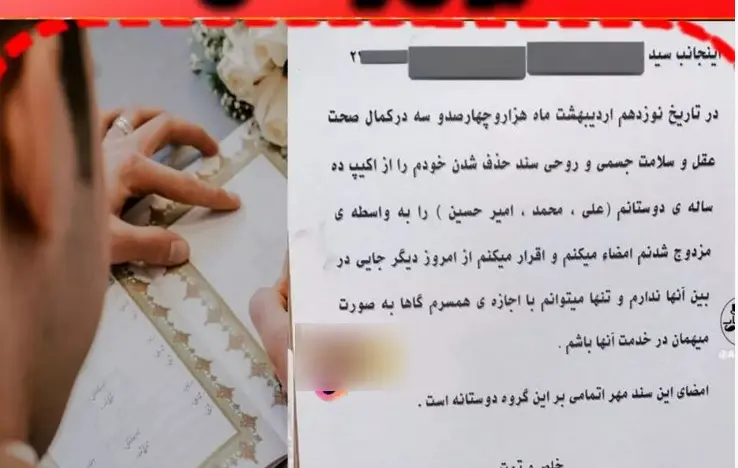 اینجانب سید
در تاریخ نوزدهم اردیبهشت ماه هزاروچهارصدو سه درکمال صحت
عقل و سلامت جسمی و روحی سند حذف شدن خودم را از اکیپ ده
ساله ی دوستانم (علی ، محمد ، امیر حسین ) را به واسطه ی
مزدوج شدنم امضاء میکنم و اقرار میکنم از امروز دیگر جایی در
بین آنها ندارم و تنها میتوانم با اجازه ی همسرم گاها به صورت
میهمان در خدمت آنها باشم .
امضای این سند مهر اتمامی بر این گروه دوستانه است .